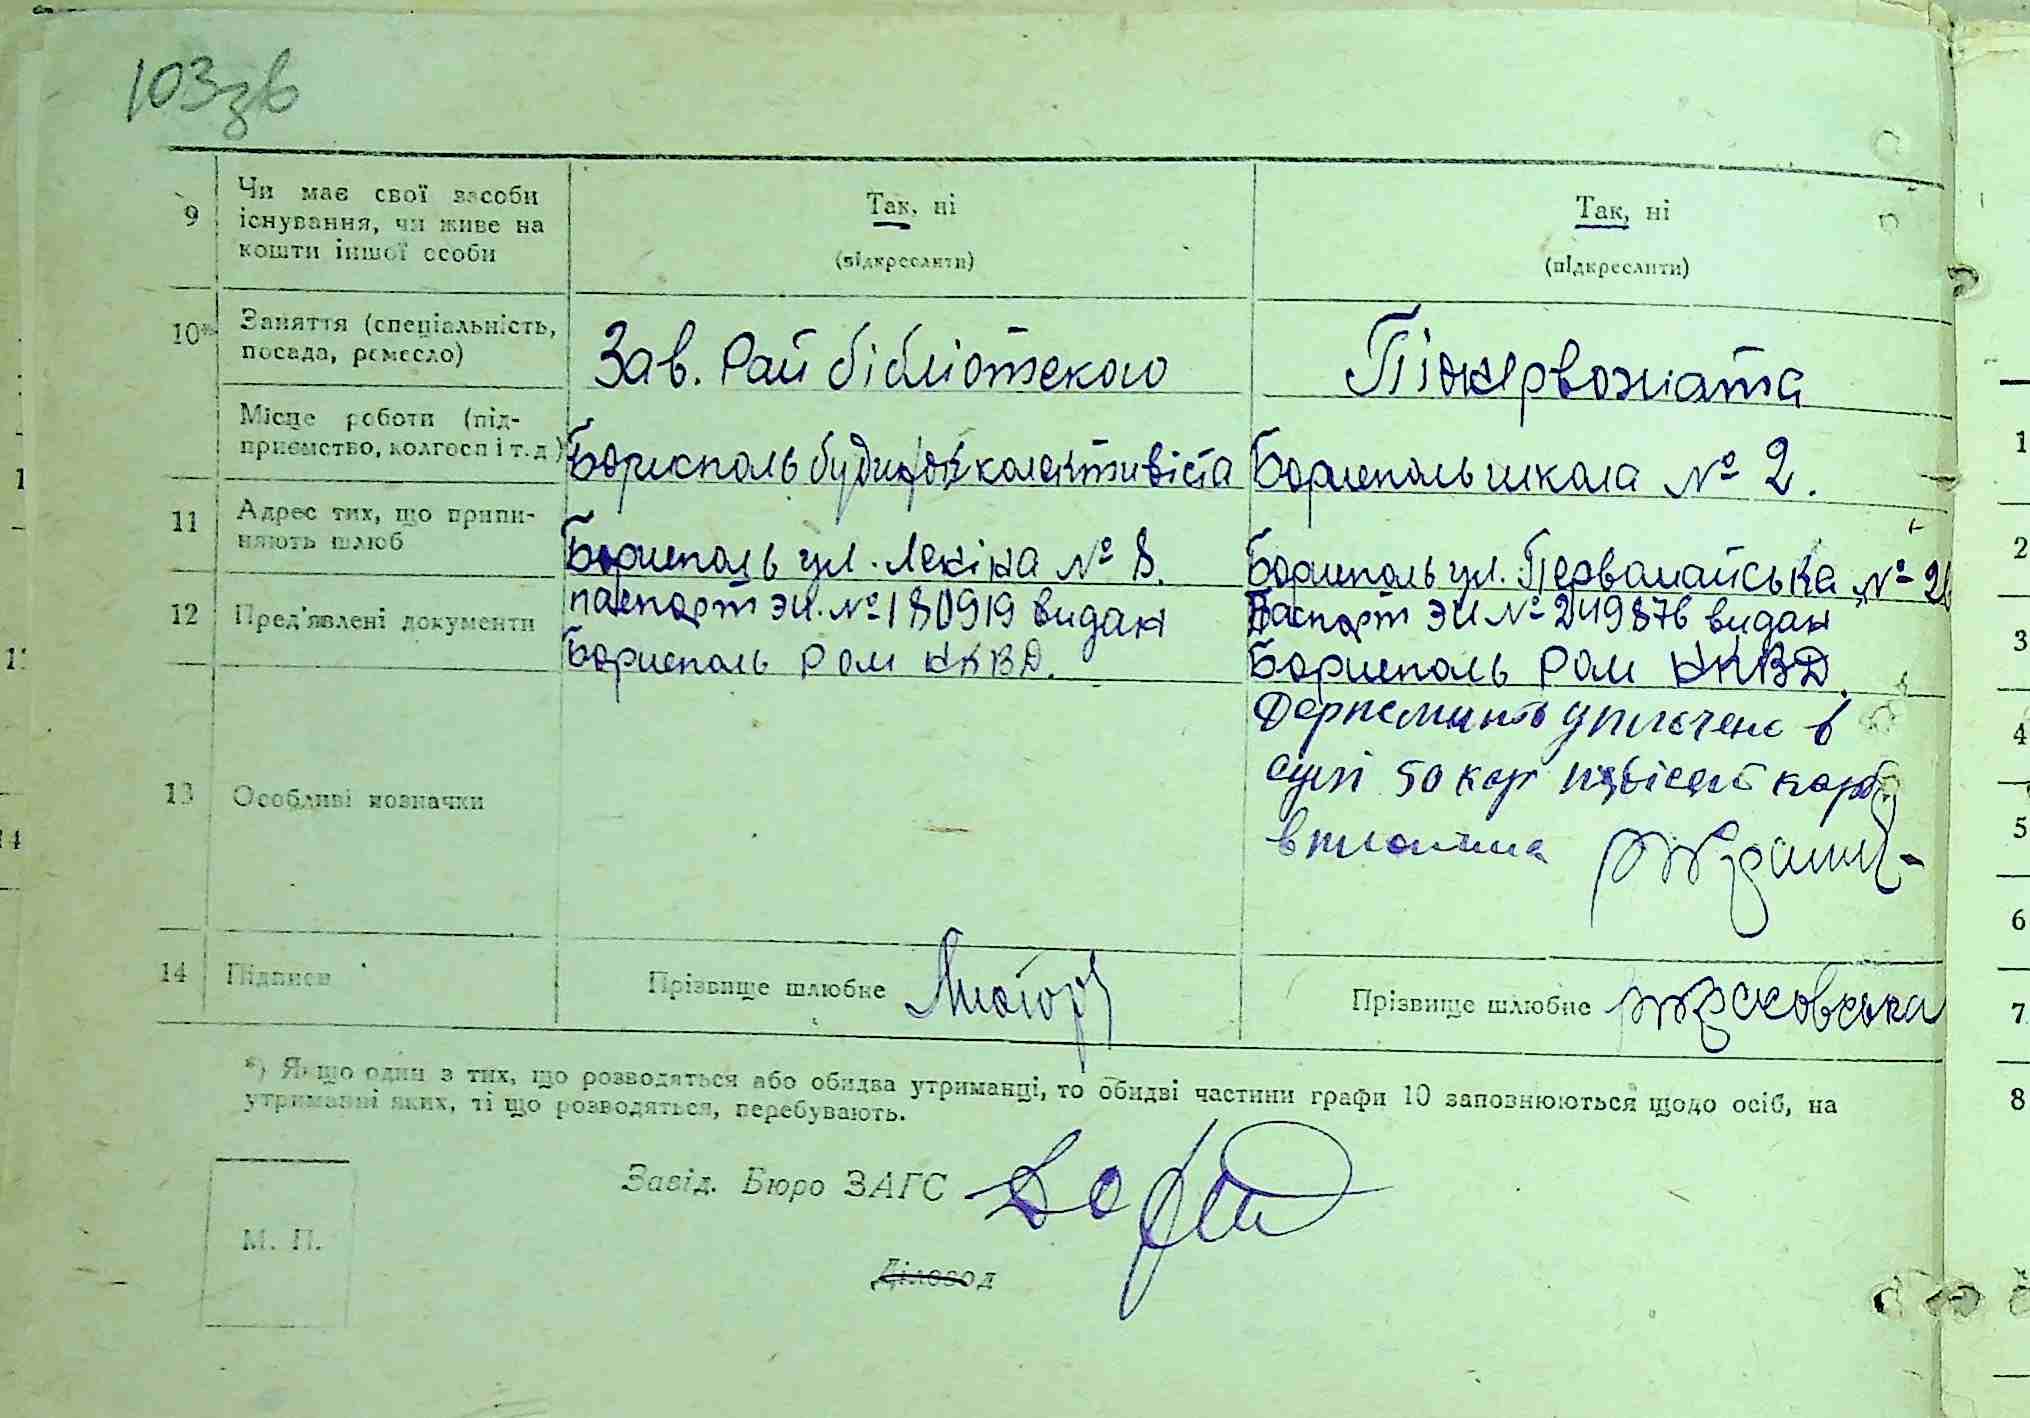 103зв
9
Чи має свої засоби
існування, чи живе на
кошти іншої особи
Так, ні
(підкреслити)
Так, ні
(підкреслити)
10*
Заняття (спеціальність,
посада, ремесло)
Зав. Рай бібліотекою
Піонервожата
Місце роботи (під-
приємство, колгосп і т.д.)
Бориспіль будинок колективіста
Бориспіль школа № 2.
11
Адрес тих, що припи-
няють шлюб
Бориспіль ул. Леніна № 8.
Бориспіль ул. Первомайська №
12
Пред'явлені документи
паспорт ЭИ. № 180919 видан
Бориспіль Ром НКВД.
Паспорт ЭИ № 249876 видан
Бориспіль Ром НКВД.
13
Особливі позначки
Держмито уплочено в
сумі 50 кар карб
вплотила
14
Підписи
Прізвище шлюбне
Прізвище шлюбне
*) Якщо один з тих, що розводяться або обидва утриманці, то обидві частини графи 10 заповнюються щодо осіб, на
утриманні яких, ті що розводяться, перебувають.
Завід. Бюро ЗАГС
М. П.
Діловод
1
2
3
4
5
6
7
8